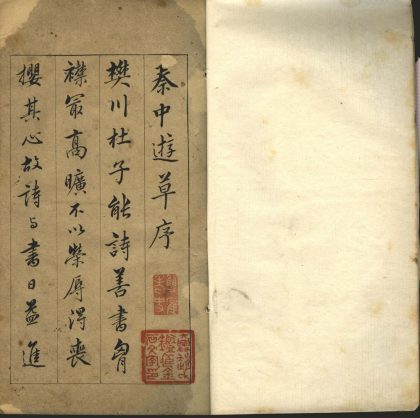 秦中遊草序
樊川杜子能詩善書胷
襟最高曠不以榮辱得喪
攖其心故詩与書日益進